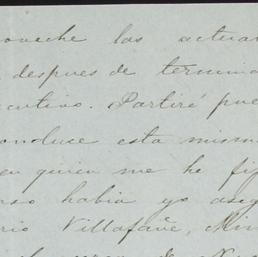 oveche las actuar
despues de termina
cutivo. Partiré pue
onduce esta misma
en quien me he fij
rso habia yo aseg
rio Villafañe, Min